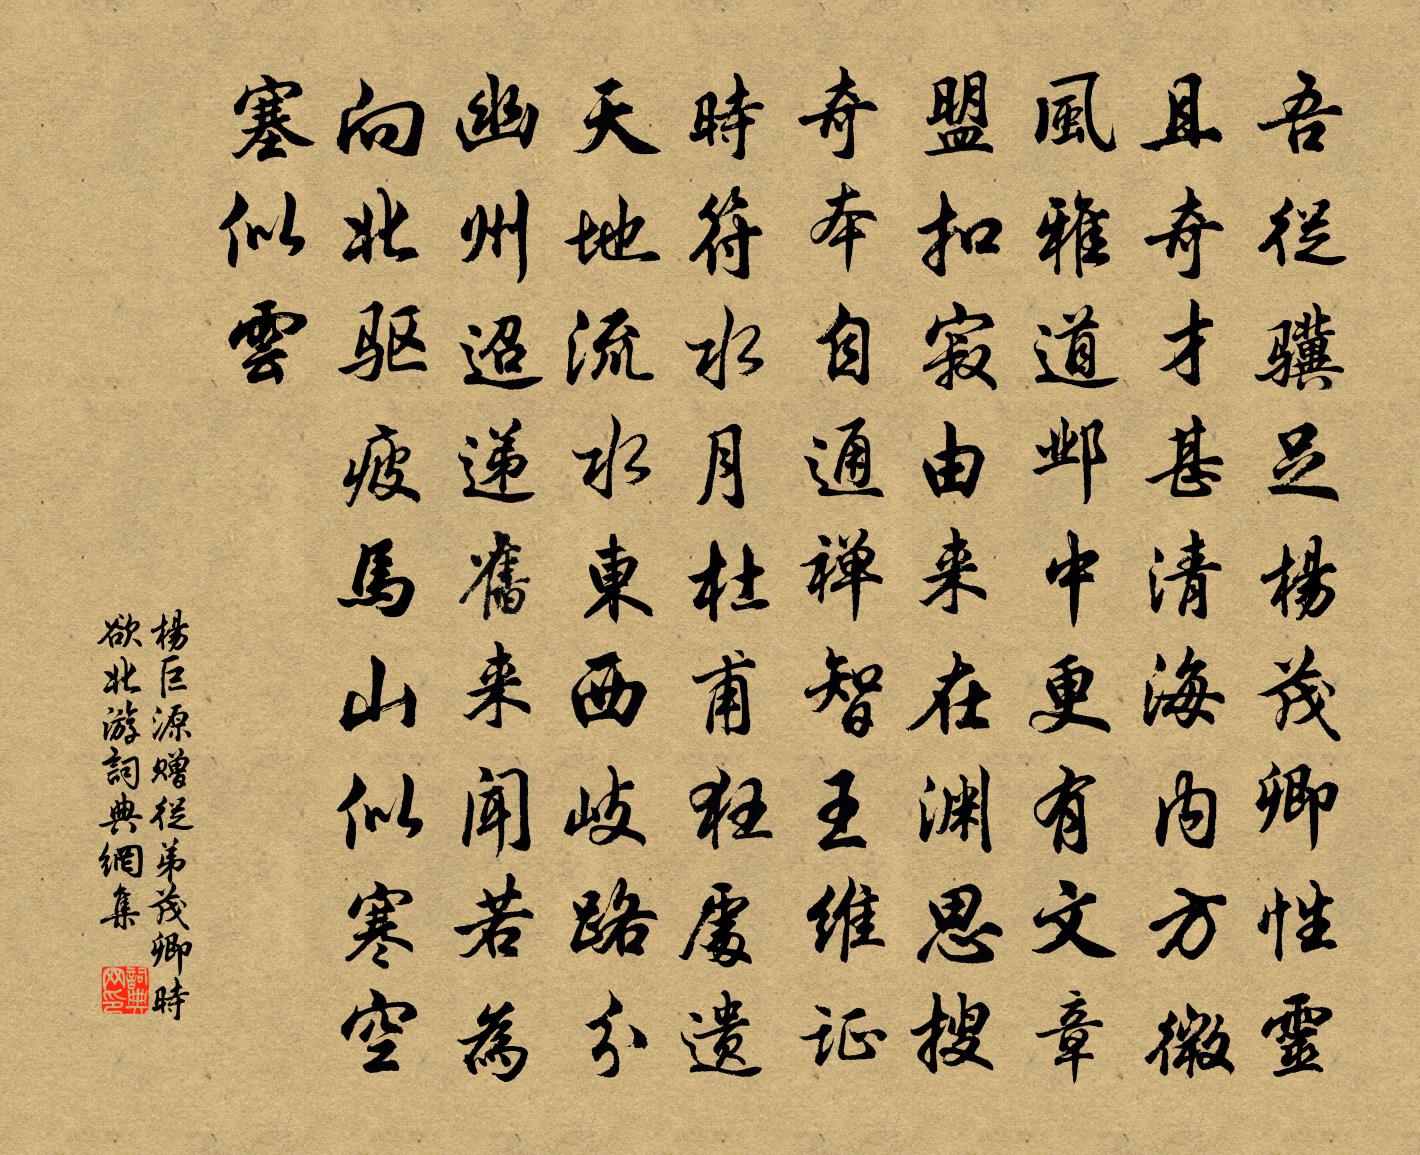 吾從驥足楊茂卿性靈
且奇才甚清海內方微
風雅道邺中更有文章
盟扣寂由来在渊思搜
奇本自通禅智王维证
時符水月杜甫狂處遗
天地流水東西歧路分
幽州迢递舊来闻若為
向北驱疲馬山似寒空
塞似雲
楊巨源赠從弟茂卿時
欲北游詞典網集
詞典网印